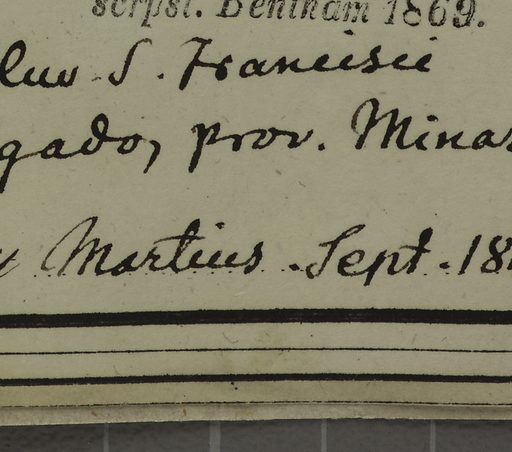 scrpsi. Bentham 1869.
S. Francisci
gado, prov. Minas
Martius. Sept. 18